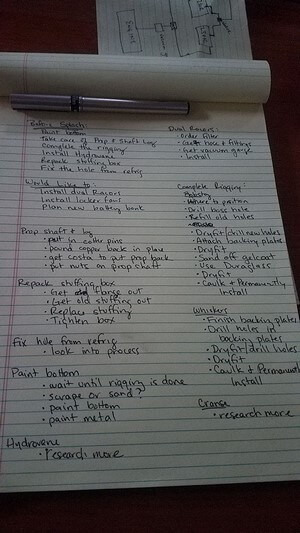 Before Splash:
Paint bottom
Take care of Prop & Shaft Log
Complete the rigging
Install Hydrovane
Repack stuffing box
Fix the hole from refrig
Would Like to:
Install dual Racors
Install locker fan
Plan new battery bank
Prop shaft & log
• put in cotter pins
• pound copper back in place
• get costa to put prop back
• put nuts on prop shaft
Repack stuffing box
• Get flange out
• Get old stuffing out
• Replace stuffing
• Tighten box
Fix hole from refrig
• look into process
Paint bottom
• wait until rigging is done
• scrape or sand?
• paint bottom
• paint metal
Hydrovane
• research more
Dual Racors:
• Order filter
• hose & fittings
• Get vacuum gauge
• Install
Complete Rigging
Bobstay
• position
• Drill boss hole
• Refill old holes
• Dryfit/drill new holes
• Attach backing plates
• Dryfit
• Sand off gelcoat
• Use Duraglass
• Dryfit
• Caulk & Permanently
Install
Whiskers
• Finish backing plates
• Drill holes in
backing plates
• Dryfit/drill holes
• Dryfit
• Caulk & Permanently
Install
Cranse
• research more